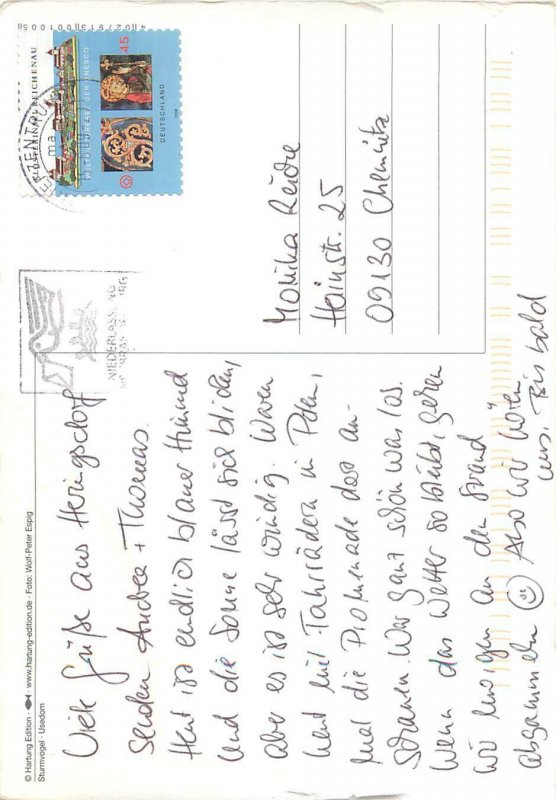 Viele Grüße aus Heringsdorf
senden Andrea + Thomas.
Heut ist endlich blauer Himmel
und die Sonne lässt sich blicken,
aber es ist sehr windig. Waren
heut mit Fahrrädern in Polen,
mal die Promenade dort an-
schauen. War ganz schön was los.
Wenn das Wetter so bleibt, gehen
wir morgen an den Strand
abgammeln Also wir hören
uns. Bis bald
Monika Reiche
Heinstr. 25
09130 Chemnitz
KLOSTERINSEL REICHENAU
WELTKULTURERBE DER UNESCO
45
DEUTSCHLAND
BRIEFZENTRUM
ma
NIEDERLASSUNG
© Hartung Edition · www.hartung-edition.de · Foto: Wolf-Peter Espig
Sturmvogel · Usedom